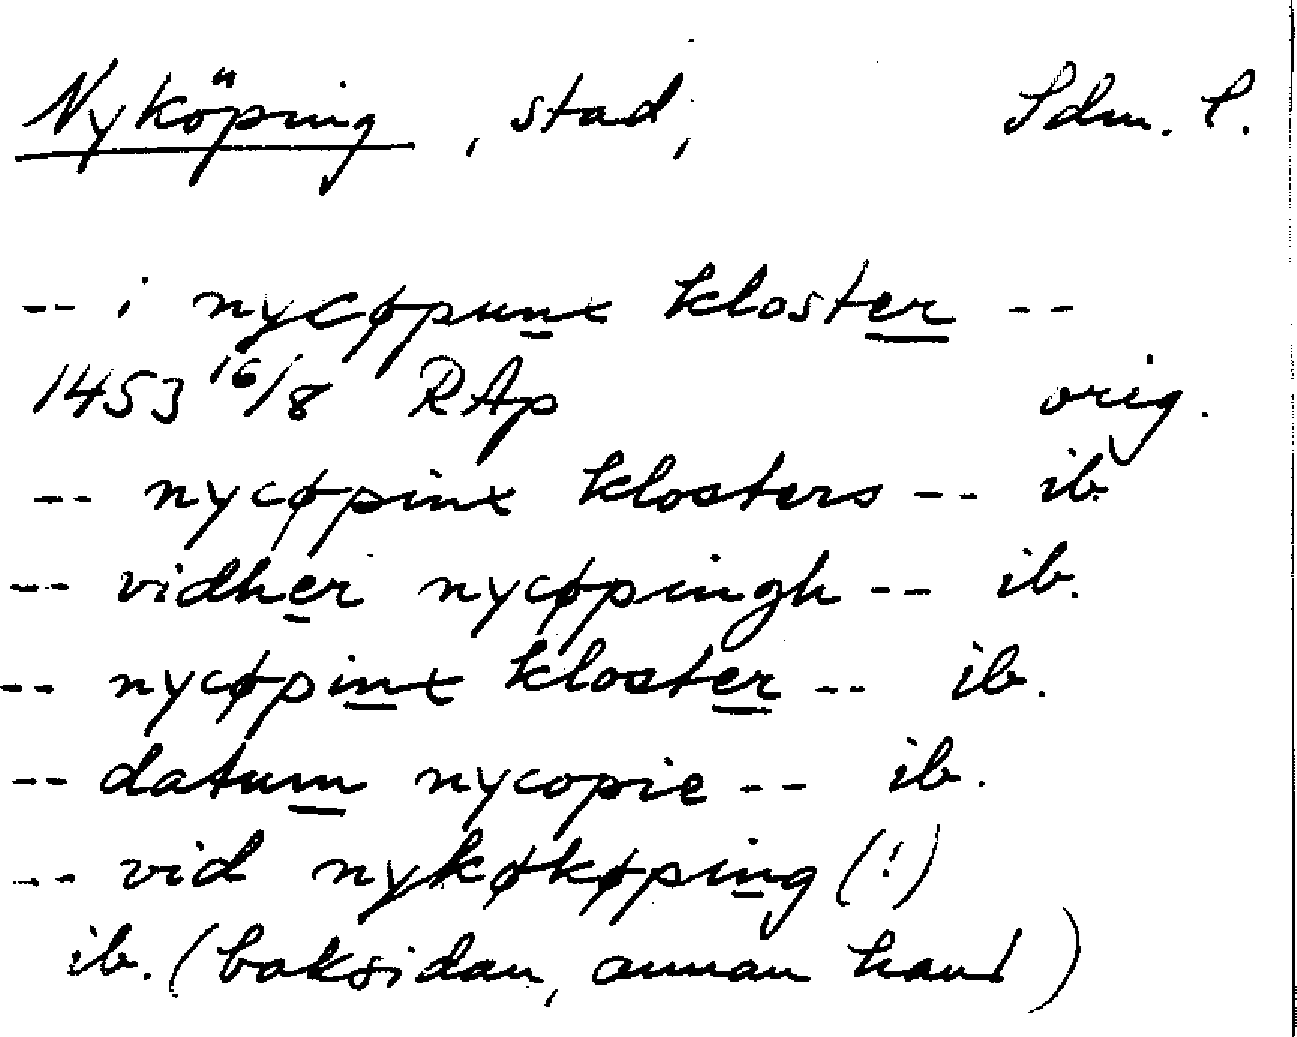 Nyköping, stad, Sdm. l.
-- i nycøpunx kloster --
1453 16/8 RAp orig.
-- nycøpinx klosters -- ib.
-- vidher nycøpingh -- ib.
-- nycøpinx kloster -- ib.
-- datum nycopie -- ib.
-- vid nykøkøping (!)
ib. (baksidan, annan hand)